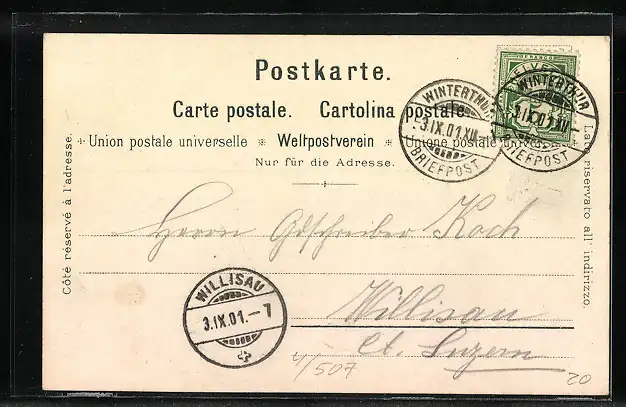 Postkarte.
Carte postale. Cartolina postale
Union postale universelle * Weltpostverein * Unione postale univers
Nur für die Adresse.
Côté réservé à l'adresse.
Lato riservato all' indirizzo.
FRANCO
HELVETIA
WINTERTHUR
3.IX.01.XII
BRIEFPOST
WINTERTHUR
3.IX.01.XII
BRIEFPOST
Herrn Gdschreiber Koch
Willisau
Ct. Luzern
WILLISAU
3.IX.01.-7
4/507
20